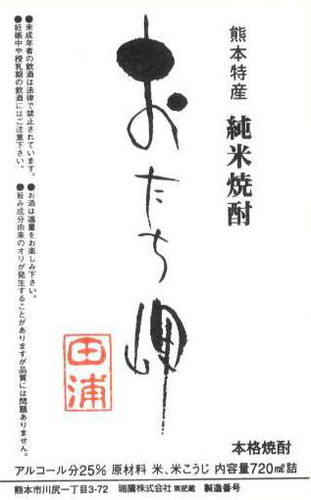 熊本特産
純米焼酎
おたち岬
田浦
本格焼酎
●未成年者の飲酒は法律で禁止されています。
●妊娠中や授乳期の飲酒にはご注意下さい。
●お酒は適量をお楽しみ下さい。
●旨み成分由来のオリが発生することがありますが品質には問題ありません。
アルコール分25% 原材料 米、米こうじ 内容量720㎖詰
熊本市川尻一丁目3-72 瑞鷹株式会社 東肥蔵 製造番号